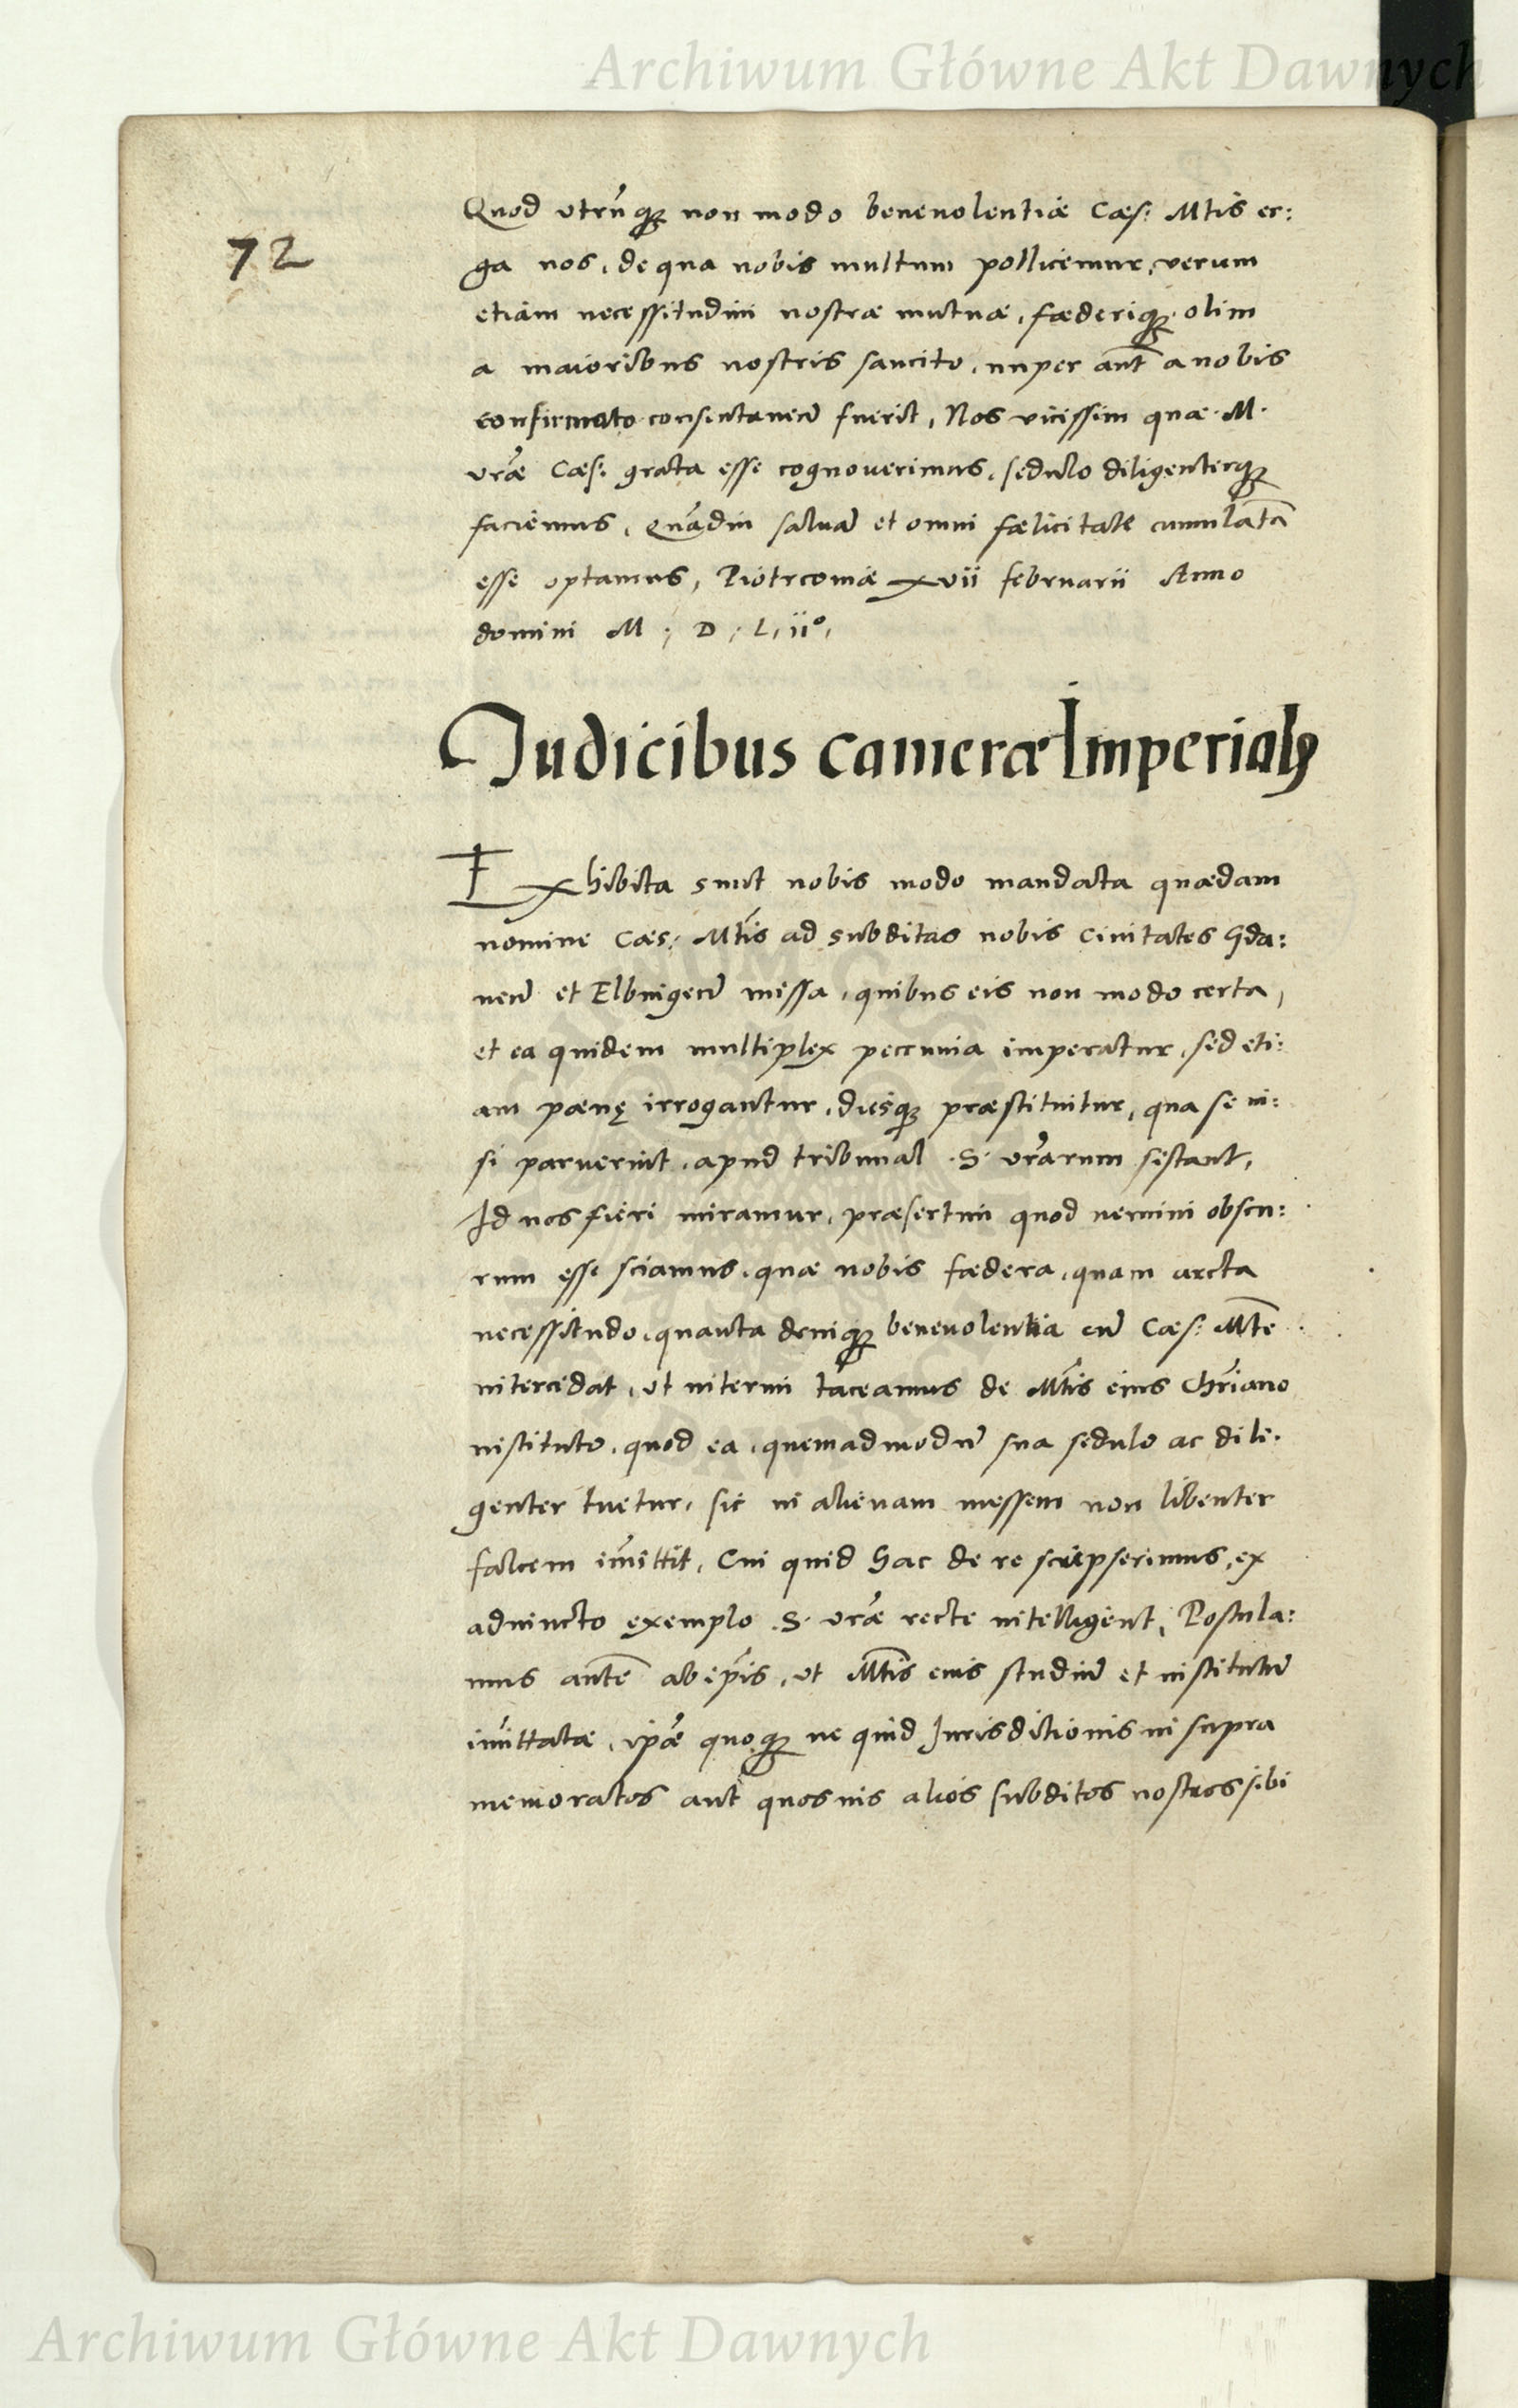 Archiwum Główne Akt Dawnych
72
Quod vtrũq3 non modo beneuolentiæ Cæs: Mtis er:
ga nos, de qua nobis multum pollicemur, verum
etiam necessitudini nostræ mutuæ, fæderiq3 olim
a maioribus nostris sancito, nuper aut̃ a nobis
confirmato consentaneũ fuerit, Nos vicissim quæ M.
vr̃æ Cæs: grata esse cognouerimus, sedulo diligenterq3
faciemus, Quã diu saluã et omni fælicitate cumulatã
esse optamus, Piotrcouiæ xvii februarii Anno
domini M; D; L, ii°,
Judicibus cameræ Imperialis
Exhibita sunt nobis modo mandata quædam
nomine Cæs: Mtis ad subditas nobis ciuitates Gda:
neñ et Elbingeñ missa, quibus eis non modo certa,
et ea quidem multiplex pecunia imperatur, sed eti:
am pœnę irrogantur, diesq3 præstituitur, qua se ni:
si paruerint, apud tribunal S. vr̃arum sistant,
Id nos fieri miramur, præsertim quod nemini obscu:
rum esse sciamus, quæ nobis fædera, quam arcta
necessitudo, quanta deniq3 beneuolentia cũ Cæs: Mte
intercedat, vt interim taceamus de Mtis eius Chr̃iano
instituto, quod ea, quemadmodũ sua sedulo ac dili:
genter tuetur, sic in alienam messem non libenter
falcem im̃ittit, Cui quid hac de re scripserimus, ex
adiuncto exemplo S. vr̃æ recte intelligent, Postula:
mus autẽ ab ep̃is, vt Mtis eius studiũ et institutũ
imittatæ, ip̃æ quoq3 ne quid Jurisdictionis in supra
memoratos aut quosuis alios subditos nostros sibi
Archiwum Główne Akt Dawnych